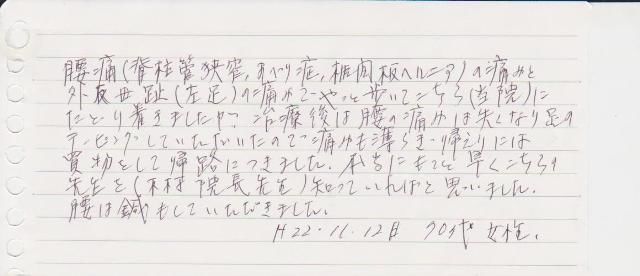 腰痛(脊柱管狭窄,すべり症,椎間板ヘルニア)の痛みと
外反母趾(左足)の痛みでやっと歩いてこちら(当院)に
たどり着きましたが?治療後は腰の痛みは失くなり足の
テーピングしていただいたので痛みも薄らぎ帰えりには
買物をして帰路につきました。本当にもっと早くこちらの
先生を(木村院長先生)知っていればと思いました。
腰は鍼もしていただきました。
H22.11.12日 70代 女性.